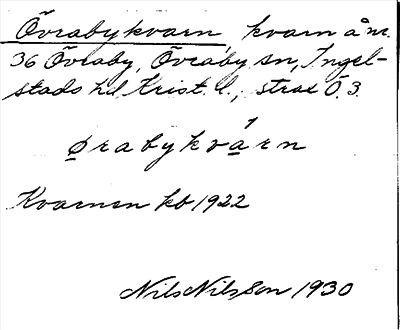 Övrabykvarn, kvarn å nr.
36 Övraby, Övraby sn, Ingel-
stads hd, Krist. l., strax Ö. 3.
ørabykvárn
Kvarnen kb 1922
Nils Nilsson 1930